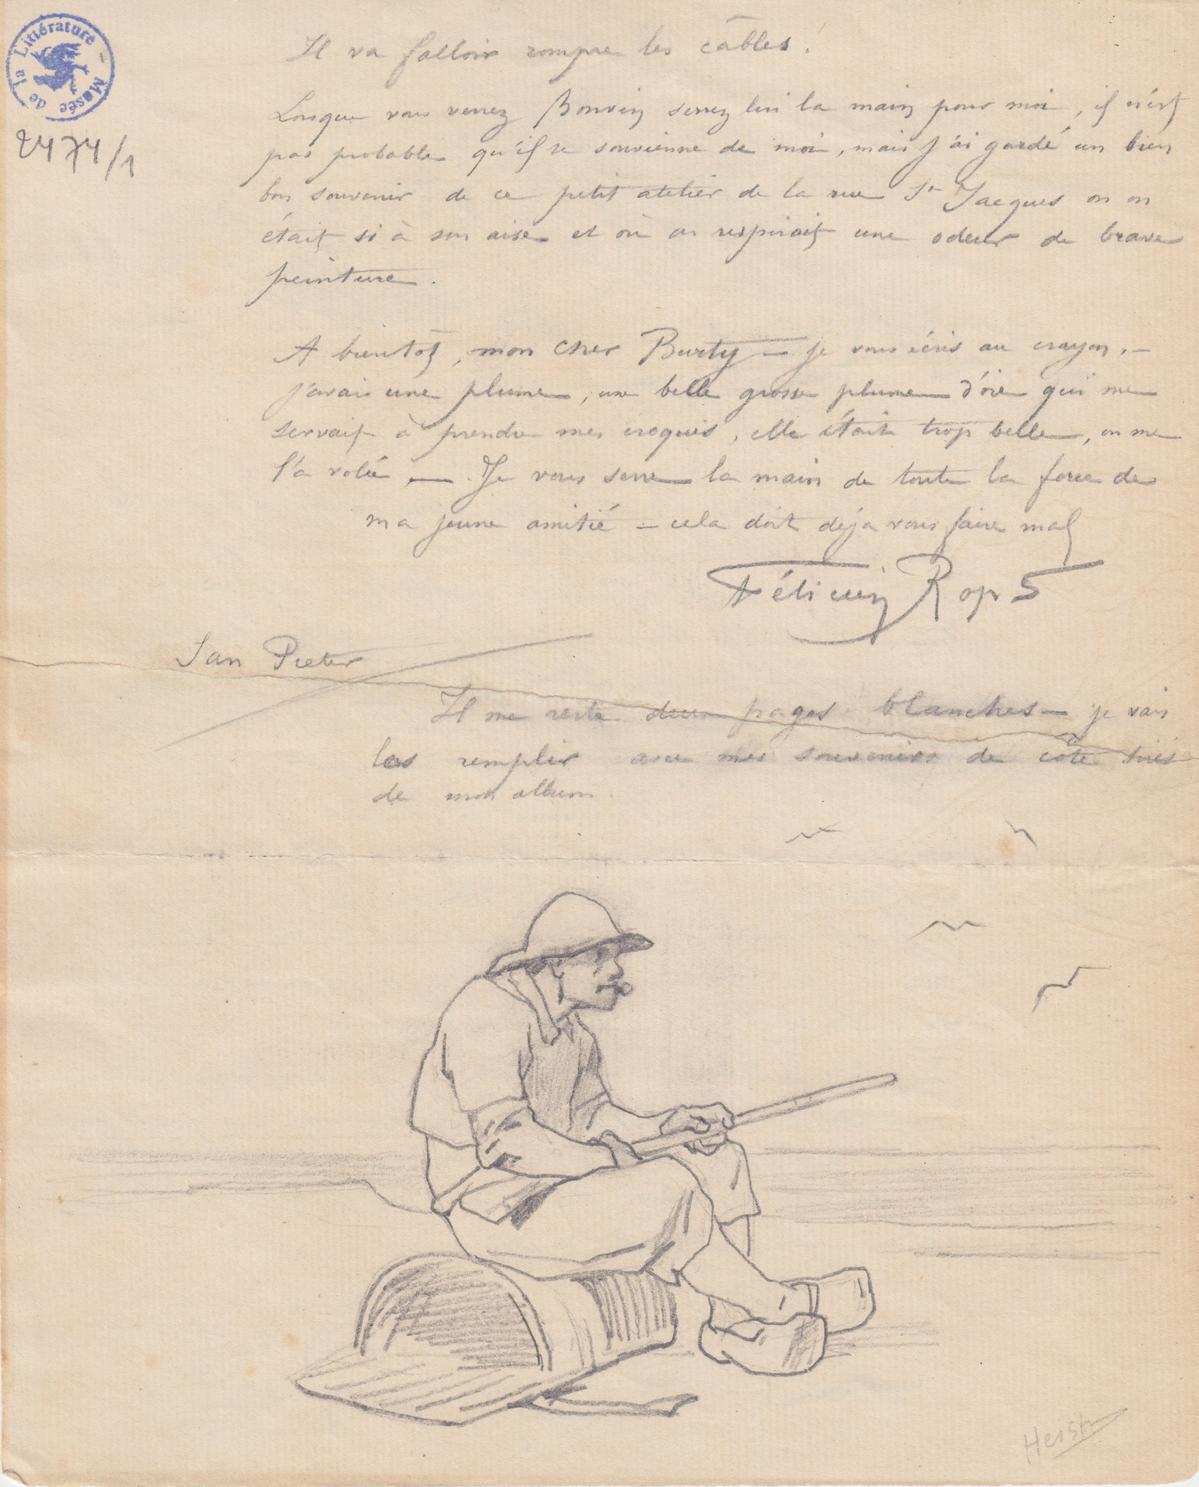 Musée de la Littérature
2474/1
Il va falloir rompre les câbles !
Lorsque vous verrez Bonvin serrez lui la main pour moi, il n'est
pas probable qu'il se souvienne de moi, mais j'ai gardé un bien
bon souvenir de ce petit atelier de la rue St Jacques où on
était si à son aise et où on respirait une odeur de brave
peinture.
A bientôt, mon cher Burty – je vous écris au crayon, –
j'avais une plume, une belle grosse plume d'oie qui me
servait à prendre mes croquis, elle était trop belle, on me
l'a volée —. Je vous serre la main de toute la force de
ma jeune amitié – cela doit déja vous faire mal
Félicien Rops
Jan Pieter
Il me reste deux pages blanches – je vais
les remplir avec mes souvenirs de côte tirés
de mon album.